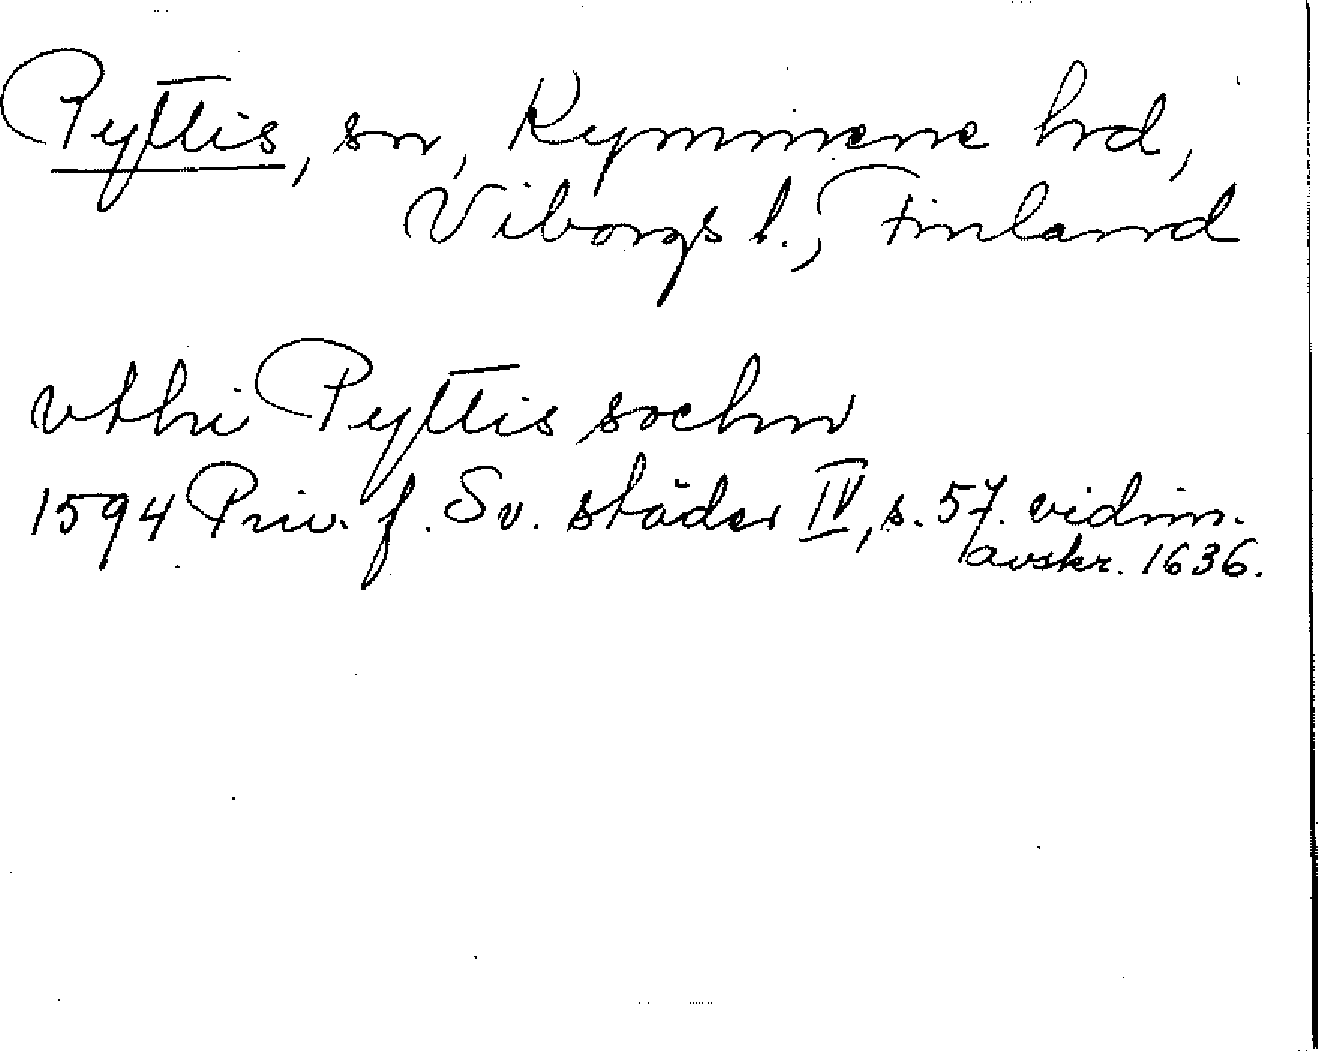 Pyttis, sn, Kymmene hrd,
Viborgs l., Finland
vthi Pyttis sochn
1594 Priv. f. Sv. städer IV, s. 57. vidim.
avskr. 1636.